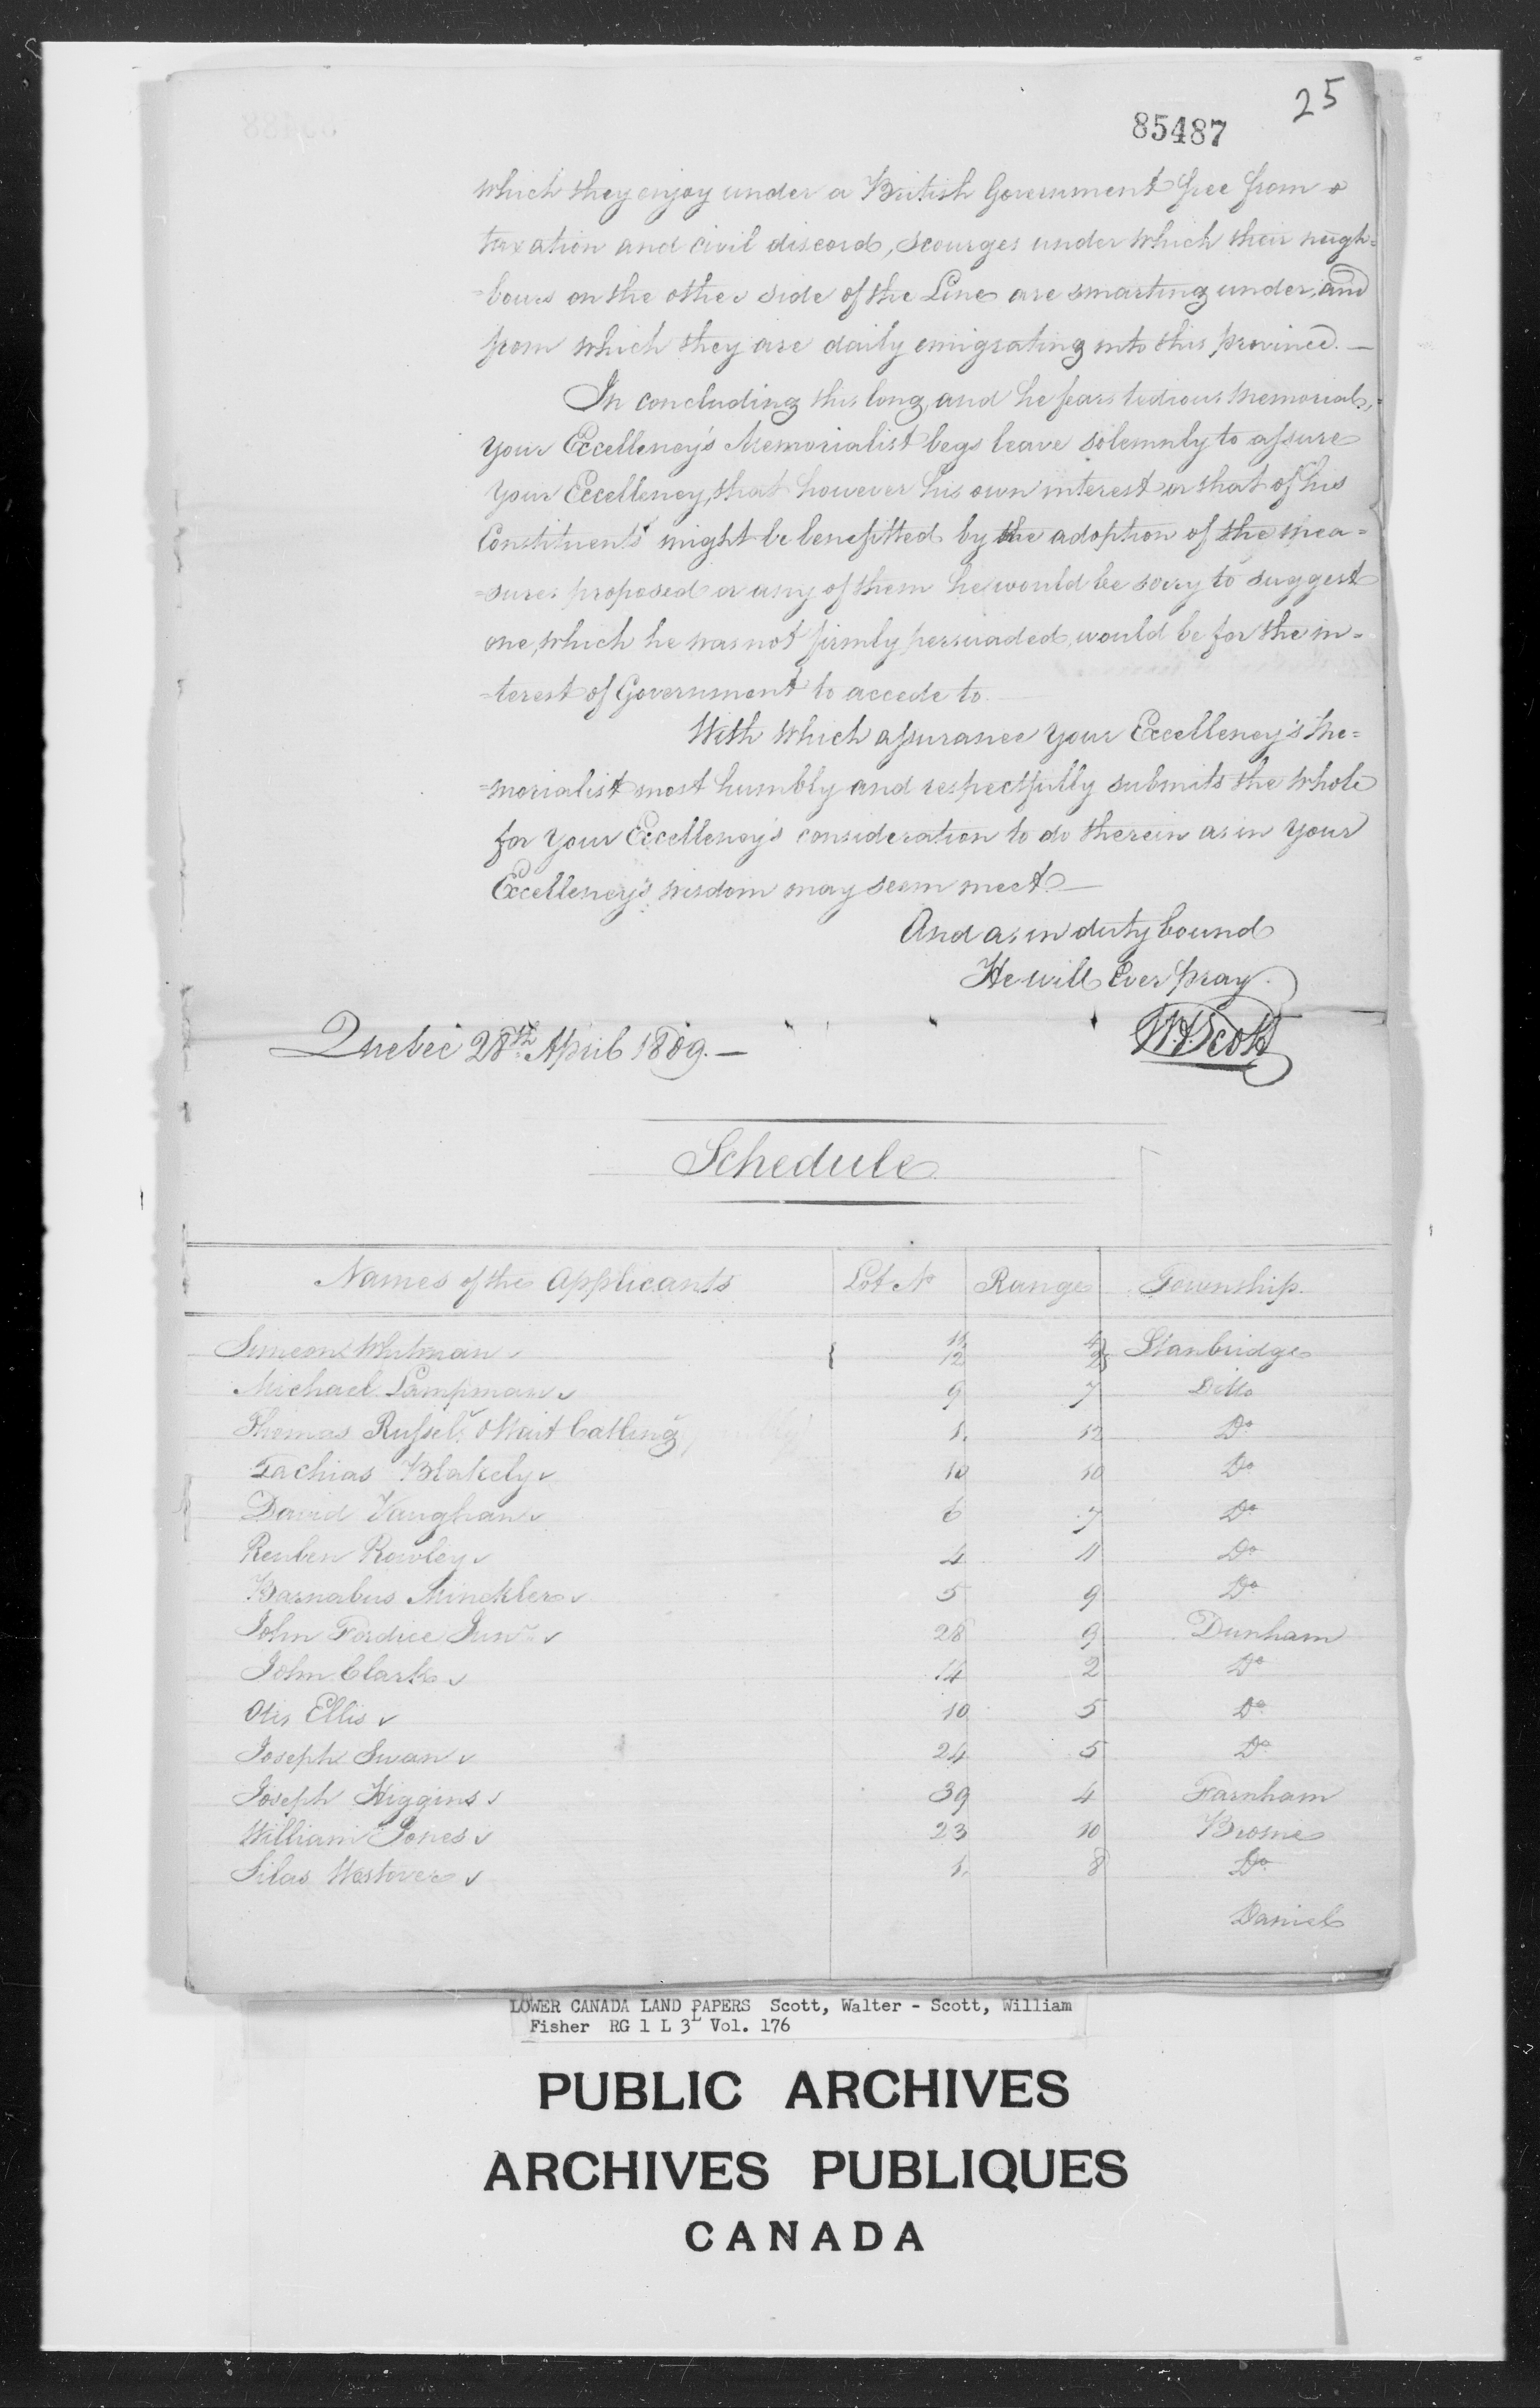 25
85487
which they enjoy under a British Government free from
taxation and civil discord, scourges under which their neigh=
=bours on the other side of the Line are smarting under, and
from which they are daily emigrating into this province. —
In concluding this long, and he fears tedious Memorial,
Your Excellency's Memorialist begs leave solemnly to assure
Your Excellency, that however his own interest or that of his
Constituents might be benefitted by the adoption of the mea=
=sures proposed or any of them he would be sorry to suggest
one, which he was not firmly persuaded, would be for the in=
=terest of Government to accede to.
With which assurance Your Excellency's Me=
=morialist most humbly and respectfully submits the whole
for Your Excellency's consideration to do therein as in Your
Excellency's wisdom may seem meet. —
And as in duty bound
He will Ever pray.
Quebec 28th April 1809. —
W. F. Scott
Schedule
Names of the Applicants Lot No Range Township
Simeon Whitman 12 2 Stanbridge
Michael Lampman 9 7 Ditto
Thomas Russel & Wait Catling 1. 12 Do
Zachias Blakely 10 10 Do
David Vaughan 6 7 Do
Reuben Rowley 4 11 Do
Barnabus Minckler 5 9 Do
John Fordice Junr 28 9 Dunham
John Clark 14 2 Do
Otis Ellis 10 5 Do
Joseph Swan 24 5 Do
Joseph Higgins 39 4 Farnham
William Jones 23 10 Brome
Silas Westover 1. 8 Do
Daniel
LOWER CANADA LAND PAPERS Scott, Walter - Scott, William
Fisher RG 1 L 3L Vol. 176
PUBLIC ARCHIVES
ARCHIVES PUBLIQUES
CANADA